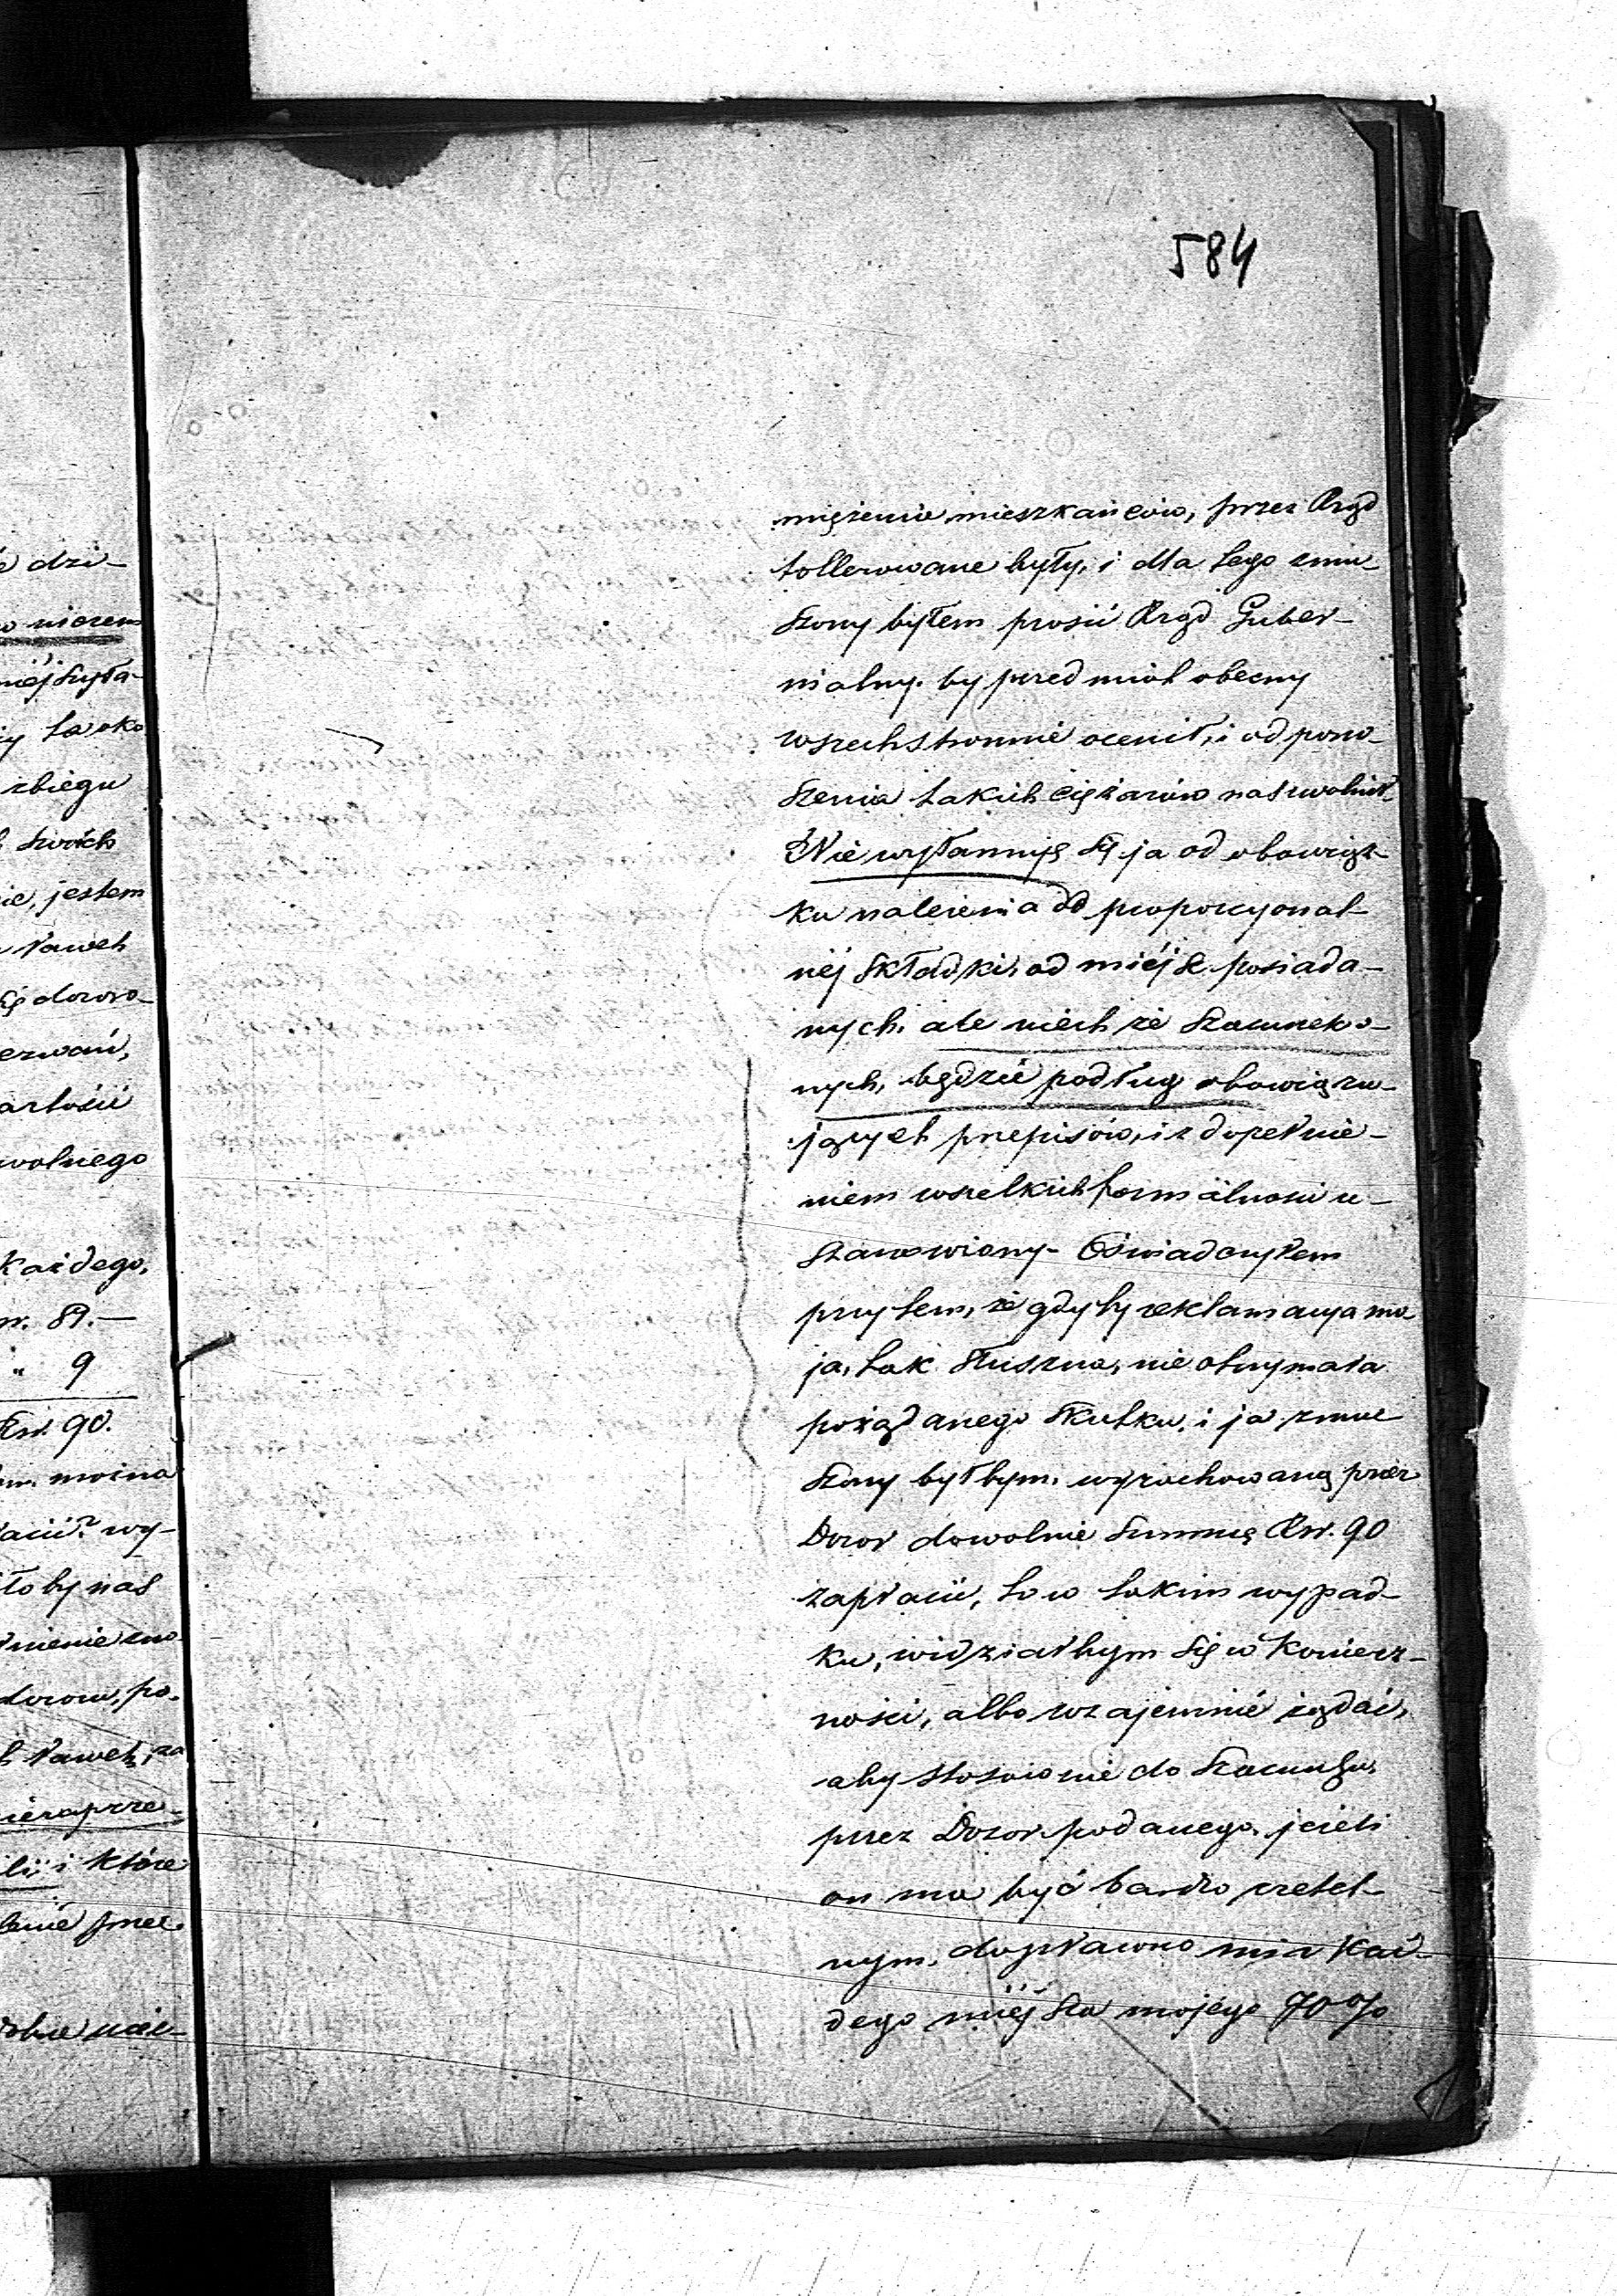 584
miężenia mieszkańców, przez Rząd
tollerowane były, i dla tego zmu-
szony byłem prosić Rząd Guber-
nialny. by przedmiot obecny
wszechstronnie ocenił, i od pono-
szenia takich ciężarów nas uwolnił.
Nie wyłamuję się ja od obowiąz-
ku należenia do proporcyonal-
néj składki, od miéjsc posiada-
nych, ale niech że szacunek o-
nych, będzie podług obowiązu-
jących przepisów, i z dopełnie-
niem wszelkich formalności u-
stanowiony - Oświadczyłem
przytem, że gdyby reklamacya mo-
ja, tak słuszna, nie otrzymała
pożądanego skutku, i ja zmu-
szony byłbym, wyrachowaną przez
Dozór dowolnie summę Rsr. 90
zapłacić, to w takim wypad-
ku, widziałbym się w koniecz-
ności, albo wzajemnie żądać,
aby stosownie do szacunku,
przez Dozór podanego, jeżeli
on ma być bardzo rzetel-
nym, dopłacono mi z każ-
dego miéjsca mojego 70%
é dzi-
niczem
niéj
ly tako
zbiegu
swoich
nie, jestem
Ławek
się dozoro-
wolnego
każdego,
89.—
" 9
Rsr. 90.
można
wy-
łoby nas
dozoru, po-
Ławek, za
i które